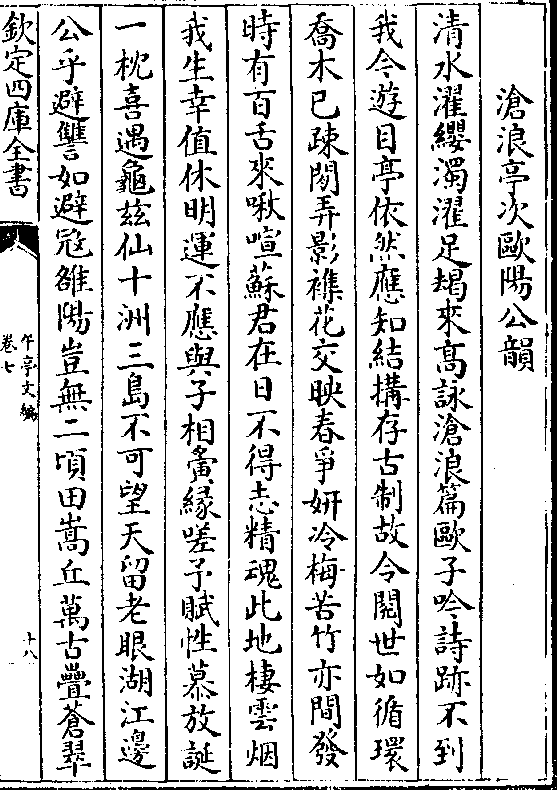 滄浪亭次歐陽公韻
清水濯纓濁濯足朅來髙詠滄浪篇歐子吟詩跡不到
我今遊目亭依然應知結搆存古制故令閱世如循環
喬木已疎閒弄影襍花交映春爭妍冷梅苦竹亦間發
時有百舌來啾喧蘇君在日不得志精魂此地棲雲烟
我生幸值休明運不應與子相夤緣嗟予賦性慕放誕
一枕喜遇龜兹仙十洲三島不可望天留老眼湖江邊
公乎避讐如避冦雒陽豈無二頃田嵩丘萬古疊蒼翠
欽定四庫全書
午亭文編
卷七
十八